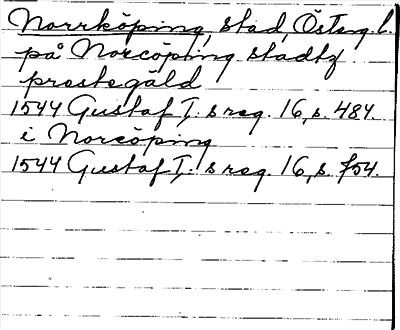 Norrköping, stad, Österg. l.
på Norcöping stadtz
prostegäld
1544 Gustaf I:s reg. 16, s. 484.
i Norcöping
1544 Gustaf I:s reg. 16, s. 754.